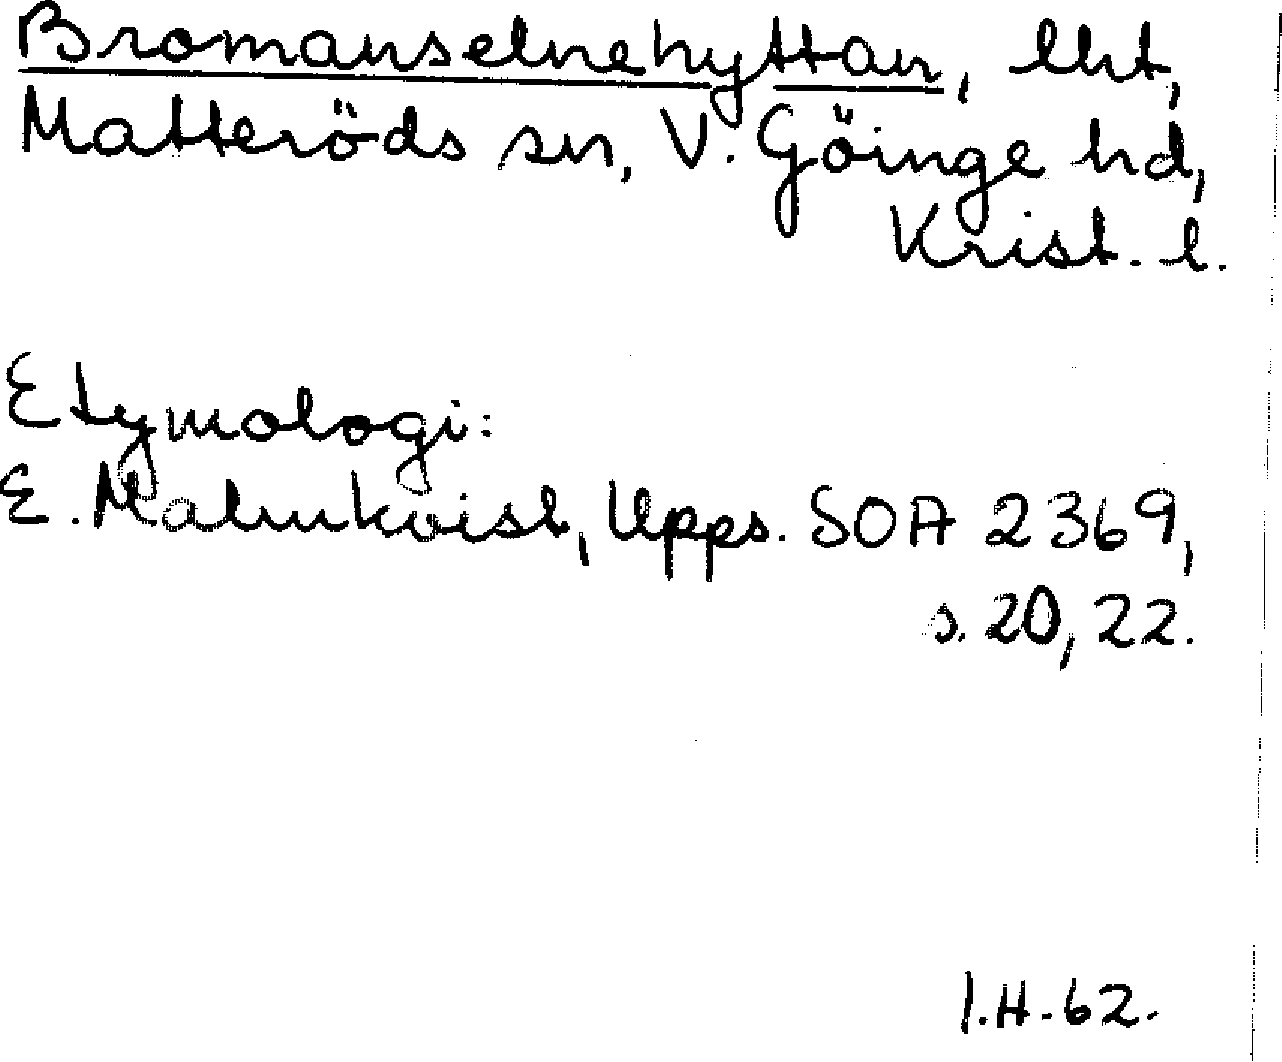 Bromanselnehyttan, lht,
Matteröds sn, V. Göinge hd,
Krist. l.
Etymologi:
E. Malmkvist, Upps. SOA 2369,
s. 20, 22.
I.H. 62.